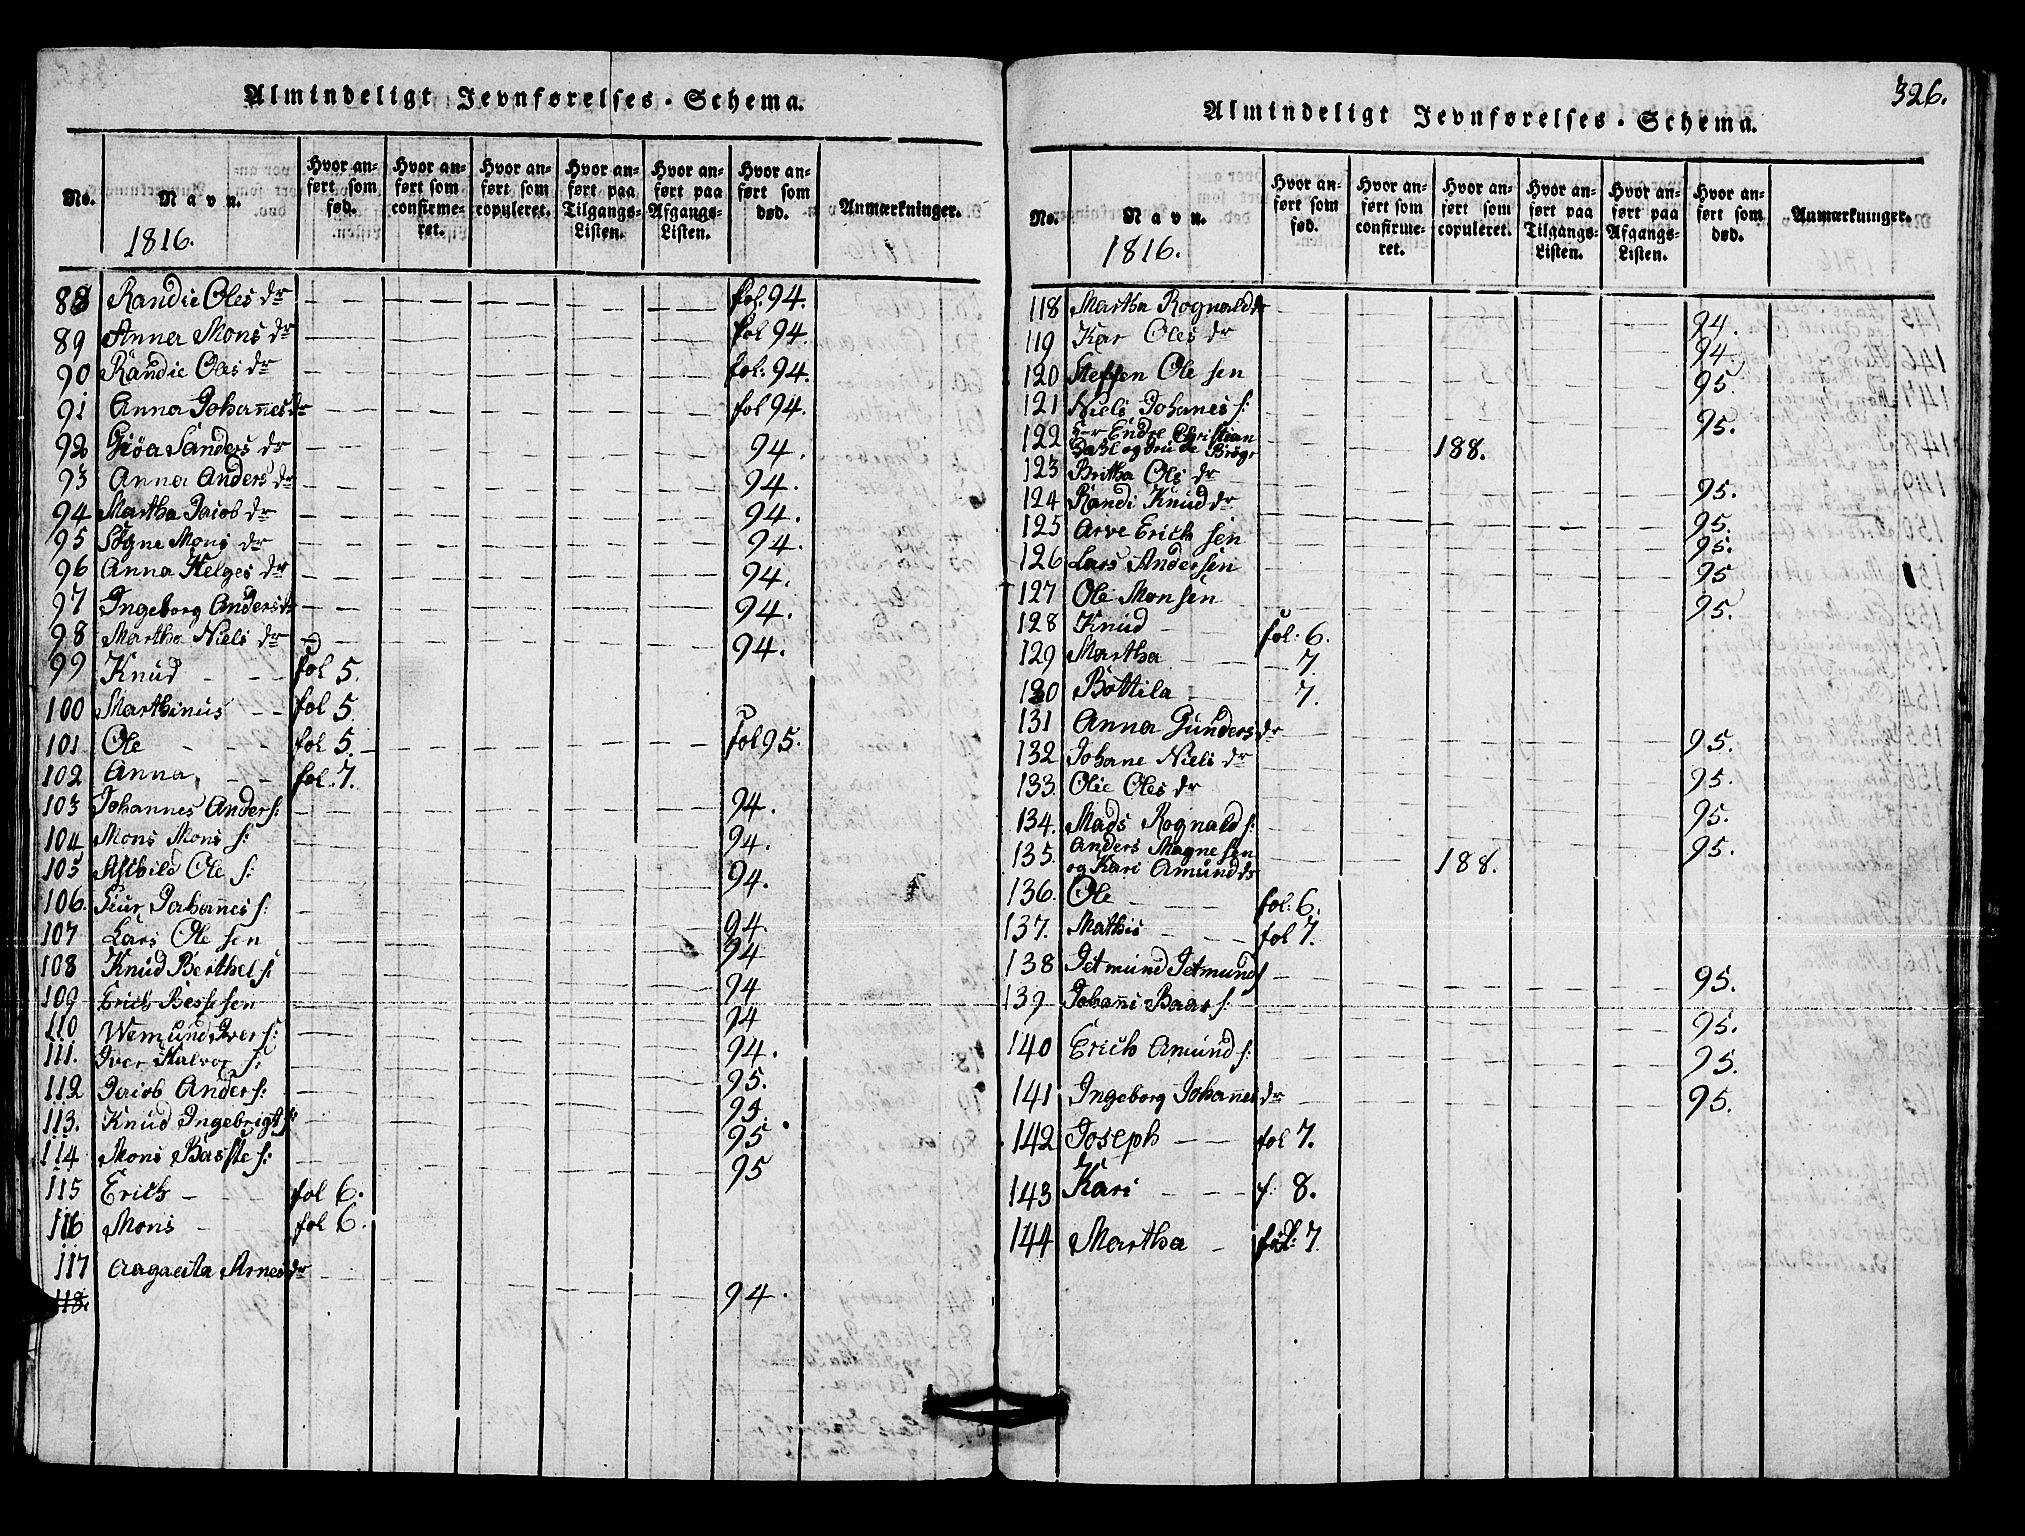 Almindeligt Jevnførelses-Schema.
No.
Navn.
Hvor anført som fød.
Hvor anført som confirmeret.
Hvor anført som copuleret.
Hvor anført paa Tilgangs-Listen.
Hvor anført paa Afgangs-Listen.
Hvor anført som død.
Anmærkninger.
1816.
88 Randie Oles dr fol. 94.
89 Anna Mons dr fol 94.
90 Randie Oles dr fol. 94.
91 Anna Johannes dr fol 94.
92 Giøa Sanders dr 94.
93 Anna Anders dr 94.
94 Martha Jacob dr 94.
95 Søgne Mons dr 94.
96 Anna Helges dr 94.
97 Ingeborg Anders dr 94.
98 Martha Niels dr 94.
99 Knud fol 5.
100 Marthinus fol 5.
101 Ole fol 5. fol 95.
102 Anna fol. 7.
103 Johannes Anders: 94.
104 Mons Mons s: 94.
105 Ole s: 94.
106. Johannes s: 94.
107 Lars Olesen 94
108 Knud Berthel s: 94
109 Erich sen 94
110 Wemund Iver s: 94.
111. Iver Halvor s: 95.
112 Jacob Anders: 95.
113. Knud Ingebrigt s: 95
114 Mons s: 95
115 Erich fol 6.
116 Mons fol 6.
117 Aagaata Arnes dr 94.
118.
326.
Almindeligt Jevnførelses-Schema.
No.
Navn.
Hvor anført som fød.
Hvor anført som confirmeret.
Hvor anført som copuleret.
Hvor anført paa Tilgangs-Listen.
Hvor anført paa Afgangs-Listen.
Hvor anført som død.
Anmærkninger.
1816.
118 Martha Rognald dr 94.
119 Kar Oles dr 94.
120 Steffen Olesen 95.
121 Niels Johanes s: 95.
122 Hr Endre Christian
Dahl og 188.
123 Britha Ols dr 95.
124 Randi Knud dr 95.
125 Arve Erichsen 95.
126 Lars Andersen 95
127 Ole Monsen 95.
128 Knud fol. 6.
129 Martha 7.
130 Bottila 7.
131 Anna Gunders dr 95.
132 Johane Niels dr 95.
133. Olie Oles dr 95.
134. Mads Rognald s: 95.
135. Anders Magnesen
og Kari Amund dr 188.
136. Ole fol. 6.
137. Mathis fol 7.
138 Jetmund Jetmund s 95.
139 Baar s: 95.
140 Erich Amund s: 95.
141 Ingeborg Johannes dr 95.
142 Joseph fol 7.
143 Kari f. 8.
144 Martha fol: 7.